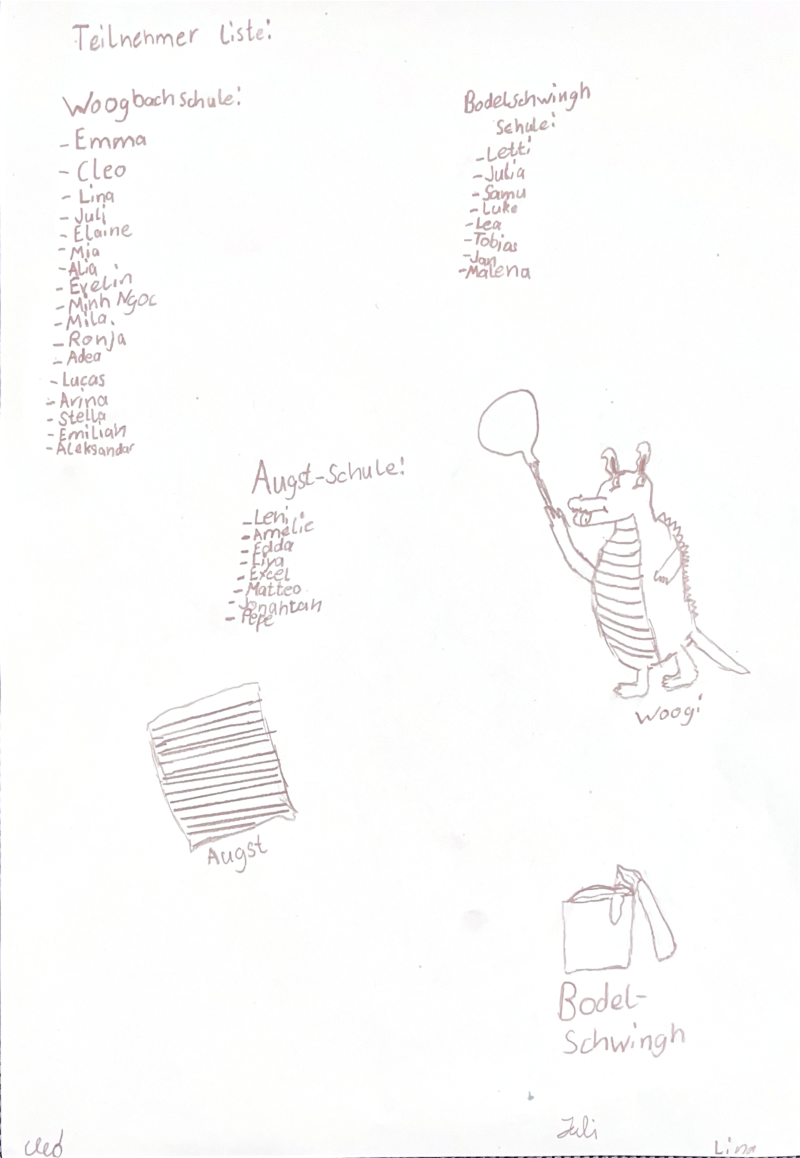 Teilnehmer Liste:
Woogbachschule:
- Emma
- Cleo
- Lina
- Juli
- Elaine
- Mia
- Alia
- Evelin
- Minh Ngoc
- Mila
- Ronja
- Adea
- Lucas
- Arina
- Stella
- Emilian
- Aleksandar
Bodelschwingh
Schule:
- Letti
- Julia
- Samu
- Luke
- Lea
- Tobias
- Jan
- Malena
Augst-Schule:
- Leni
- Amelie
- Edda
- Excel
- Matteo
- Jonahtan
- Pepe
Woogi
Augst
Bodel-
Schwingh
Cleo
Juli
Lina